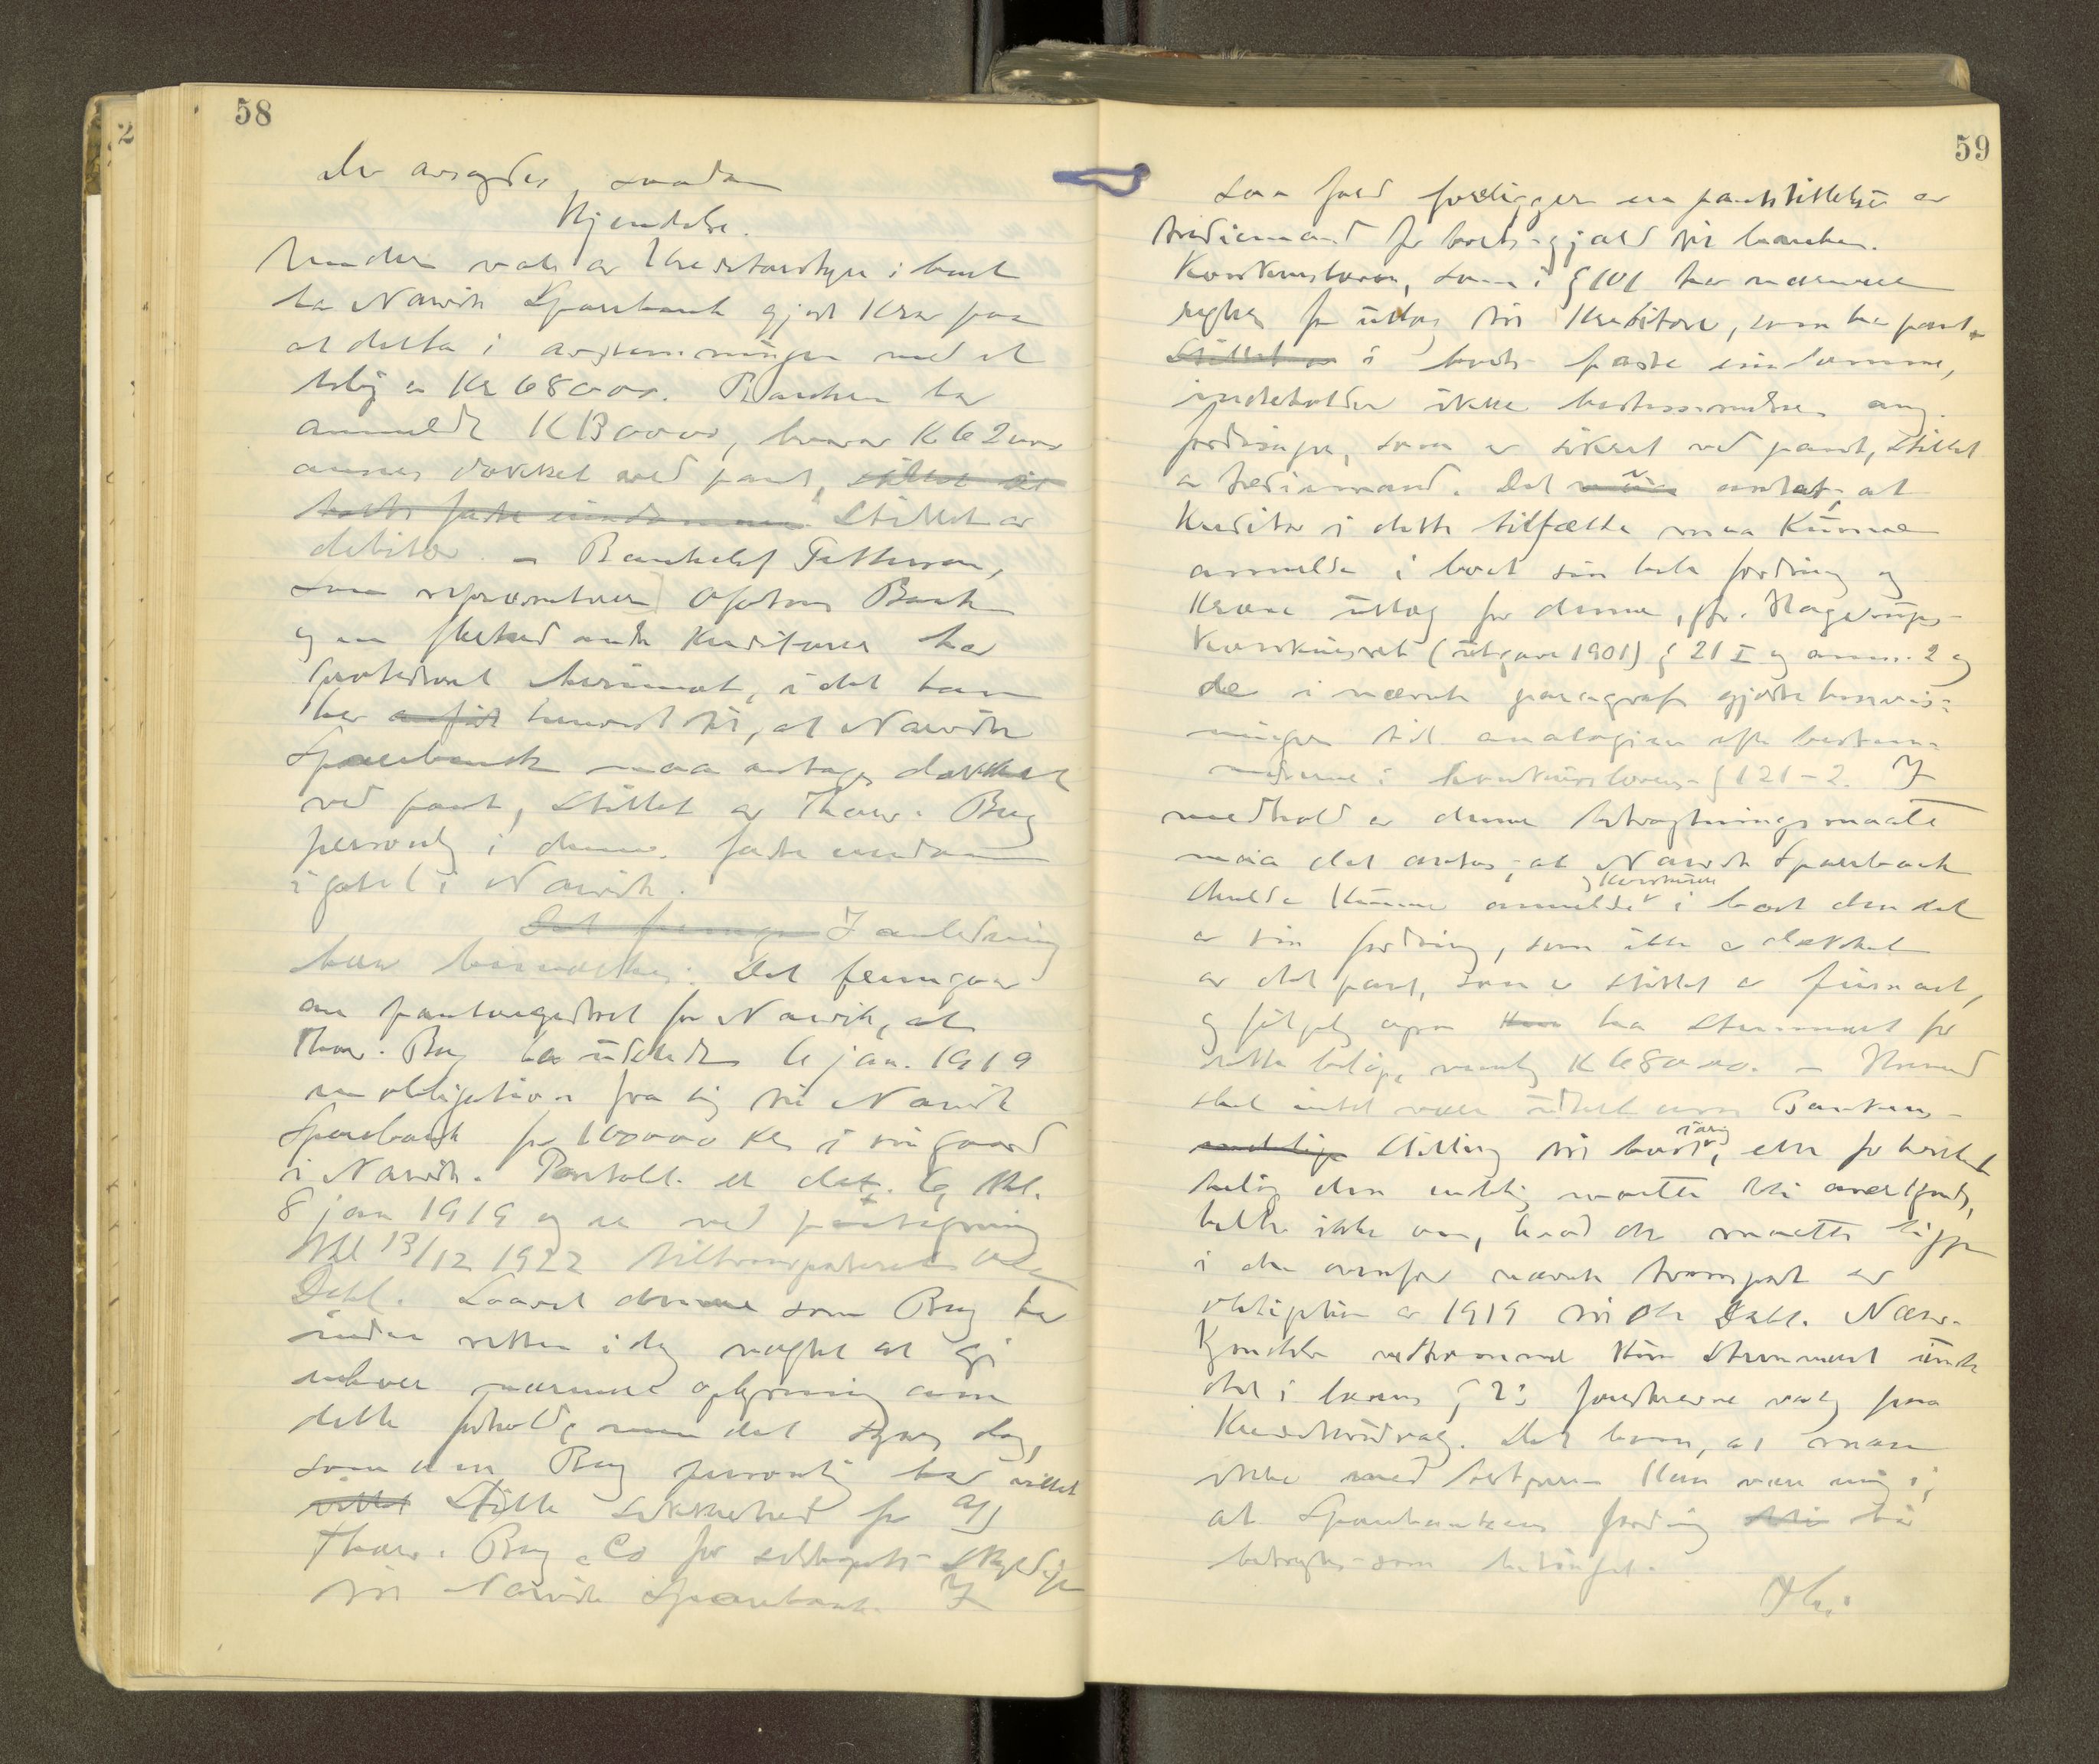 58
Der avsagdes saadan
Kjendelse.
Under valg av Kreditorstyre i boet
har Narvik Sparebank gjort Krav paa
at delta i avstemningen med et
beløp av Kr 68000. Banken har
anmeldt K 130000, hvorav K 62000
ansees dækket ved pant, stillet
boets faste eiendommer stillet av
debitor. – Bankchef Pettersen,
som repræsenterer Ofotens Bank
og en flerhed andre Kreditorer har
protestert herimot, idet han
har anført henvist til, at Narvik
Sparebank maa antages dækket
ved pant, stillet av Thorv. Berg
personlig i dennes faste eiendom
i Narvik.
Det fremgaar I anledning
herav bemerkes: Det fremgaar
av panteregistret for Narvik, at
Thorv. Berg har utstedt 6 jan. 1919
en obligation fra sig til Narvik
Sparebank for 100000 Kr i sin gaard
i Narvik. Pantobl. er dat. 6, thl.
8 jan 1919 og er ved paategning
thl 13/12 1922 tiltransporteret Ole
Dahl. Saavel denne som Berg har
under retten idag nægtet at gi
enhver nærmere oplysning om
dette forhold, men det synes dog,
som om Berg personlig har villet
villet stille sikkerhed for A/S
Thorv. Berg & Co for selskapets skyldige
til Narvik Sparebank. I
59
saa fald foreligger en pantstillelse av
trediemand for boets gjæld til banken.
Konkursloven, som i § 101 har nærmere
regler for utlæg til Kreditorer, som har pant
stillet i boets faste eiendomme,
indeholder ikke bestemmelser ang.
fordringer, som er sikret ved pant, stillet
av trediemand. Det antas, at
Kreditor i dette tilfælde maa Kunne
anmelde i boet sin hele fordring og
Kræve utlæg for denne, jfr. Hagerups
Konkursret (utgave 1901) § 21 I og anm. 2 og
de i nævnte paragraf gjorte henvis-
ninger til analogien efter bestem-
melserne i Konkurslovens § 121-2. I
medhold av denne betragtningsmaate
maa det antas, at Narvik Sparebank
skulde Kunne anmelde og Konkurrere i boet den del
av sin fordring, som ikke er dækket
av det pant, som er stillet av firmaet,
og følgelig ogsaa har stemmeret for
dette beløp, nemlig K 68000. – Hermed
skal intet være uttalt om Bankens
endelige stilling til boet iøvrig, eller for hvilket
beløp den endelig maatte bli anerkjendt,
heller ikke om, hvad der maatte ligge
i den ovenfor nævnte transport av
obligation av 1919 til Ole Dahl. Nær-
værende kjendelse vedkommer Kun stemmeret under
det i lovens § 23 foreskrevne valg paa
Kreditorutvalg. Det bem., at man
ikke med bestyreren Kan være enig i,
at Sparebankens fordring blir bør
betragtes som betinget.